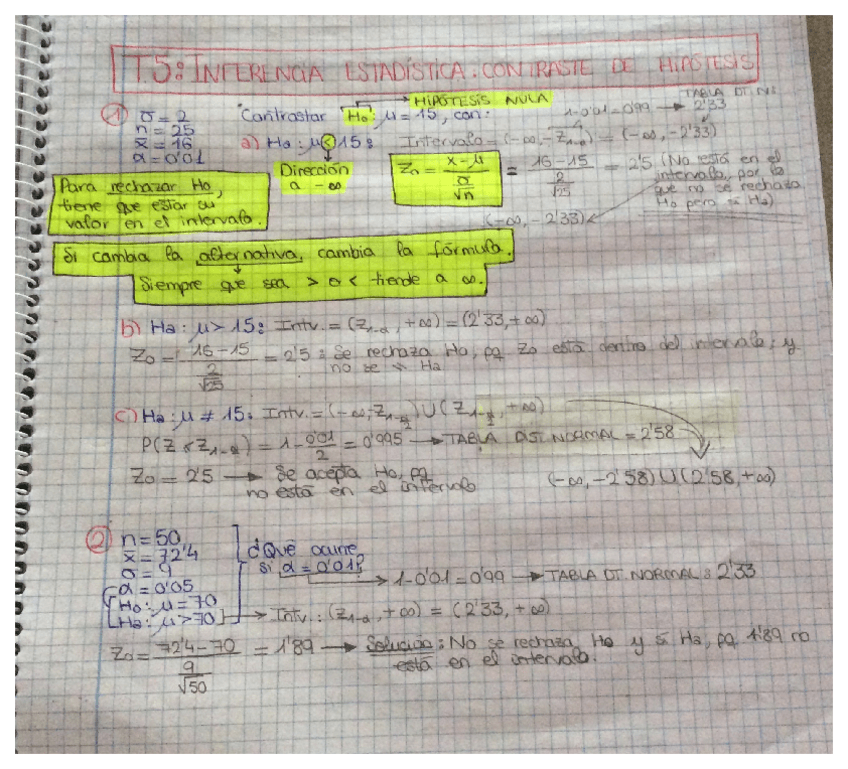 T.5: INFERENCIA ESTADÍSTICA: CONTRASTE DE HIPÓTESIS
① σ = 2
n = 25
x̄ = 16
α = 0'01
Contrastar H₀: μ = 15, con:
HIPÓTESIS NULA
1-0'01 = 0'99 → TABLA DT. N: 2'33
a) Ha: μ < 15: Intervalo = (-∞, -Z₁₋α) = (-∞, -2'33)
Dirección
a -∞
Z₀ = (x-μ)/(σ/√n) = (16-15)/(2/√25) = 2'5 (No está en el
intervalo, por lo
que no se rechaza
H₀ pero sí Ha)
(-∞, -2'33)
Para rechazar H₀,
tiene que estar su
valor en el intervalo.
Si cambia la alternativa, cambia la fórmula.
Siempre que sea > o < tiende a ∞.
b) Ha: μ > 15: Intv. = (Z₁₋α, +∞) = (2'33, +∞)
Z₀ = (16-15)/(2/√25) = 2'5: Se rechaza H₀, pq Z₀ está dentro del intervalo; y
no se Ha
c) Ha: μ ≠ 15: Intv. = (-∞, Z₁₋α/2) U (Z₁₋α/2, +∞)
P(Z < Z₁₋α) = 1 - 0'01/2 = 0'995 → TABLA DIS. NORMAL = 2'58
Z₀ = 2'5 → Se acepta H₀, pq
no está en el intervalo
(-∞, -2'58) U (2'58, +∞)
② n = 50
x̄ = 72'4
σ = 9
α = 0'05
H₀: μ = 70
Ha: μ > 70
¿Qué ocurre
si α = 0'01?
→ 1-0'01 = 0'99 → TABLA DT. NORMAL: 2'33
→ Intv.: (Z₁₋α, +∞) = (2'33, +∞)
Z₀ = (72'4-70)/(9/√50) = 1'89 → Solución: No se rechaza H₀ y sí Ha, pq 1'89 no
está en el intervalo.